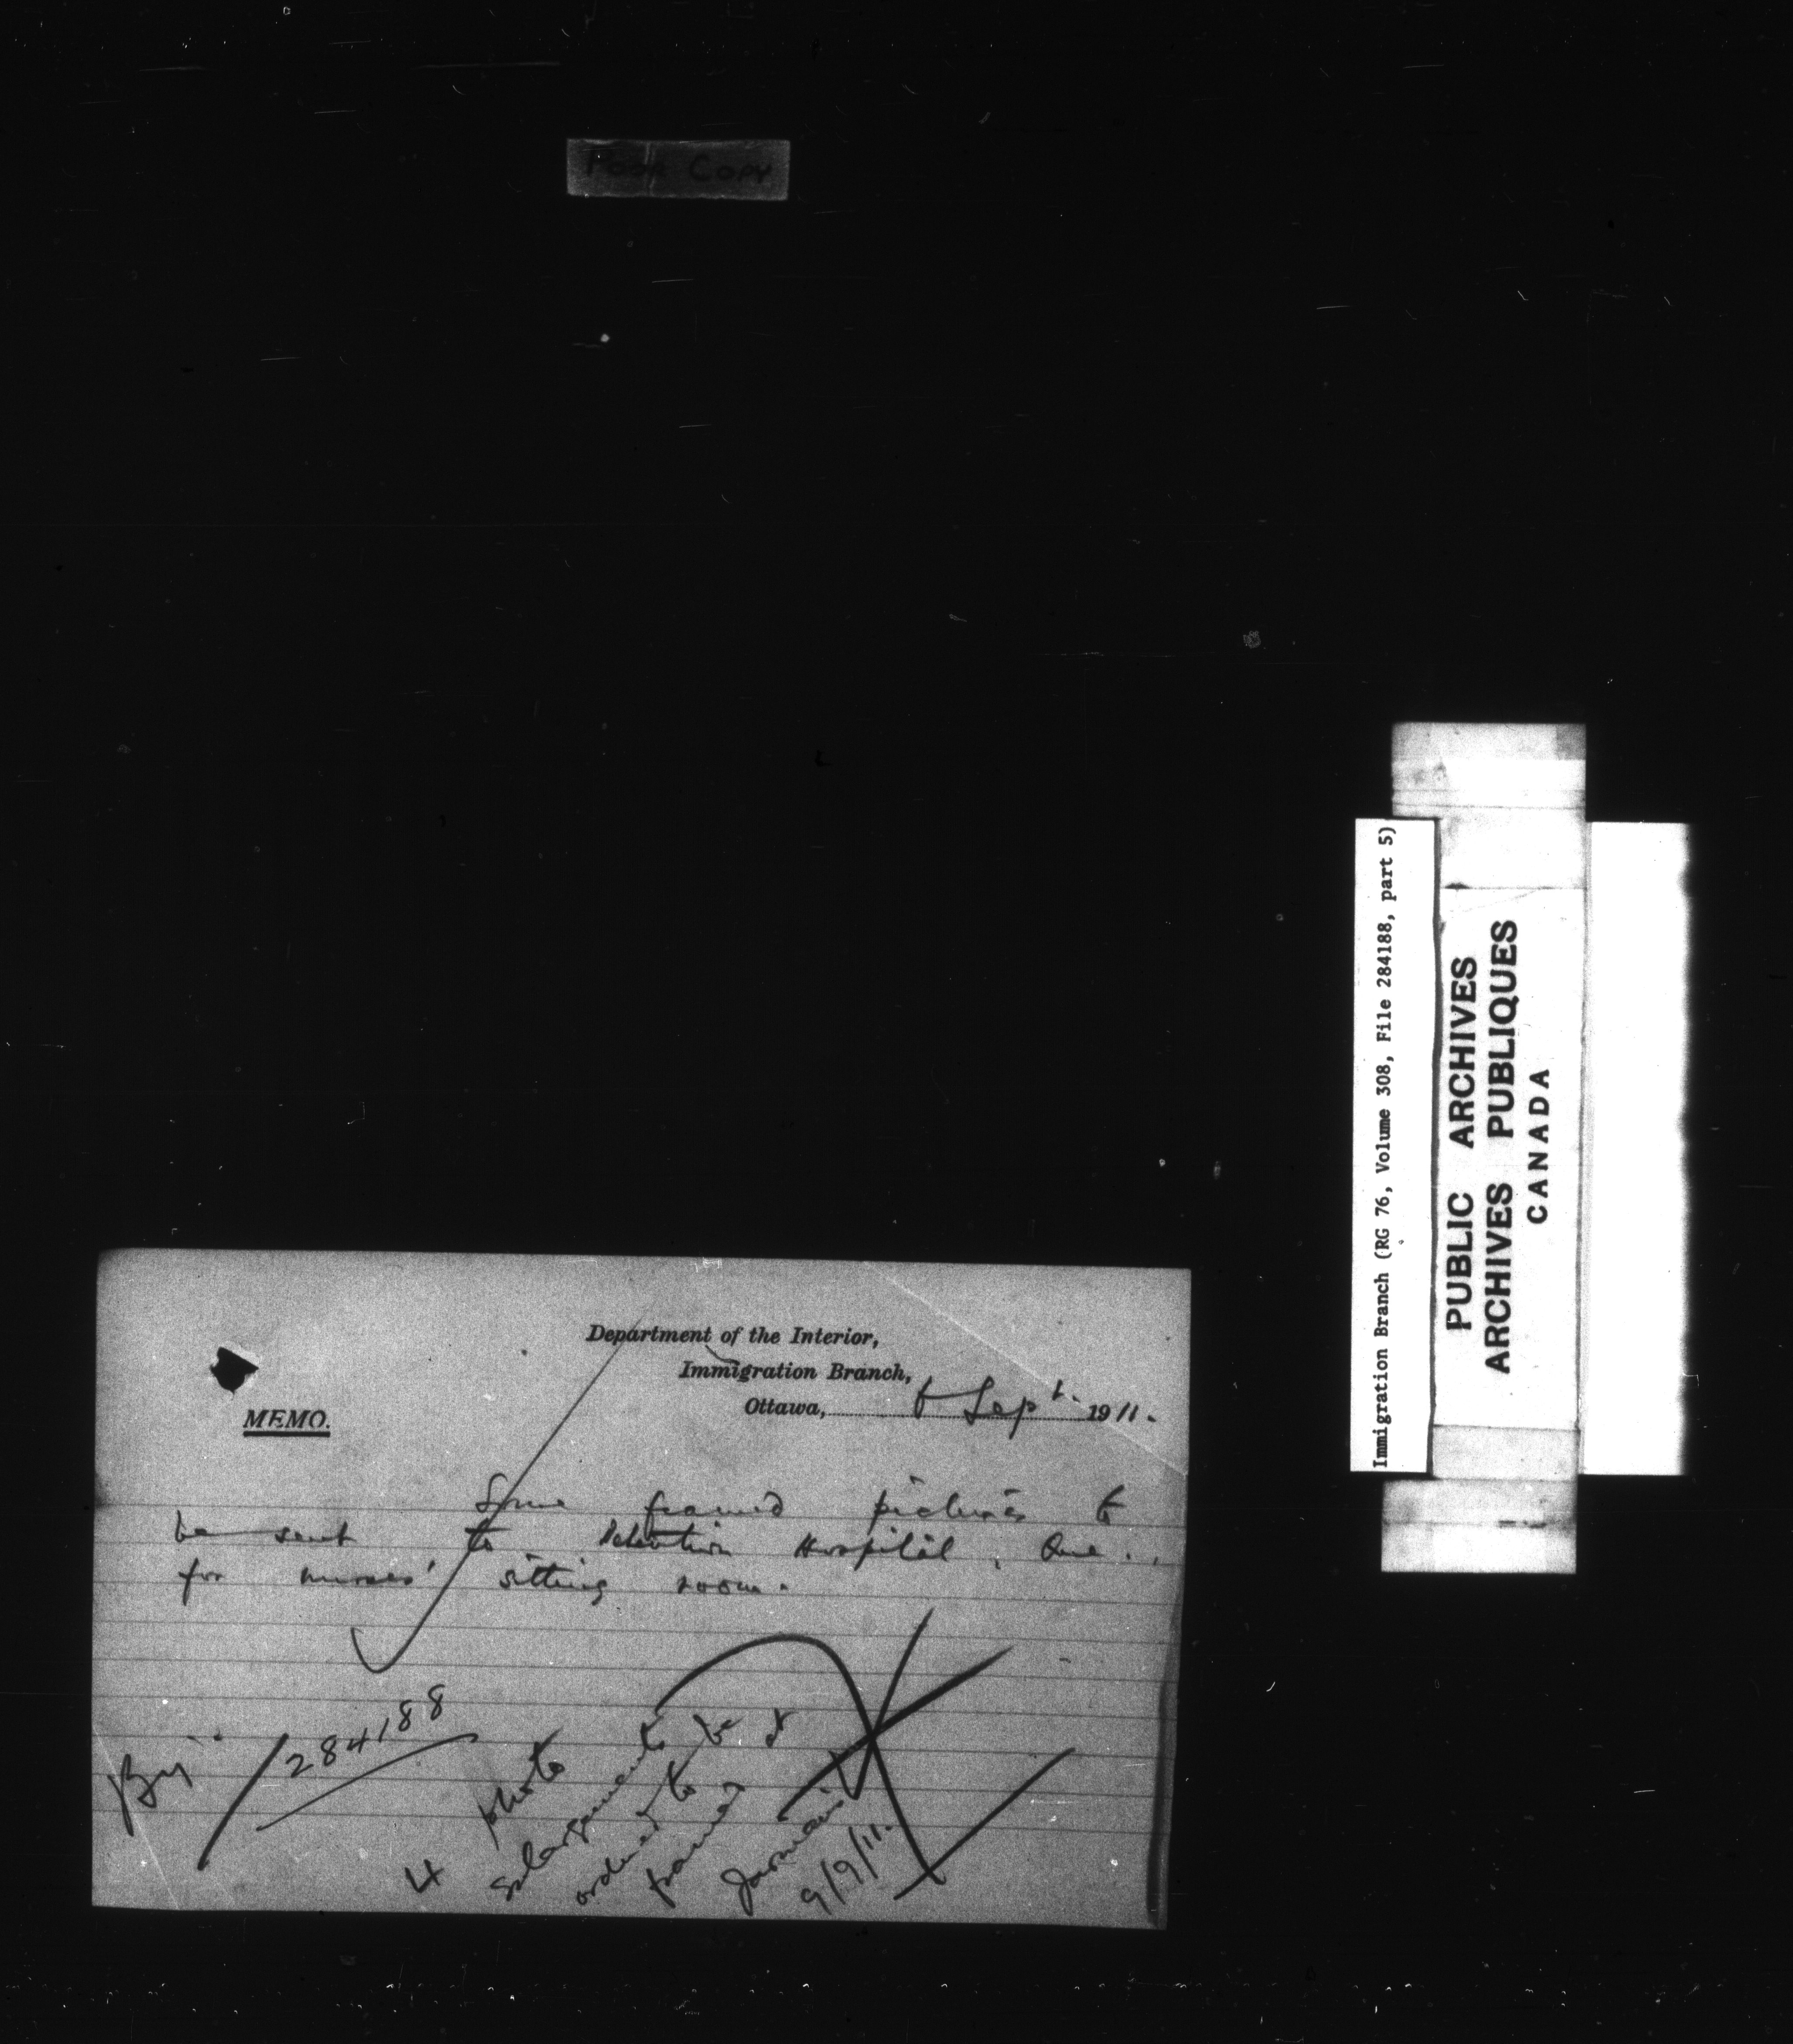 Poor Copy
Department of the Interior,
Immigration Branch,
Ottawa, Sept. 1911.
MEMO.
Some framed pictures to
be sent to Detention Hospital, Que.,
for nurses' sitting room.
284188
4 photo
enlargements
ordered to be
framed at
Jarman's
9/9/11.
Immigration Branch (RG 76, Volume 308, File 284188, part 5)
PUBLIC ARCHIVES
ARCHIVES PUBLIQUES
CANADA